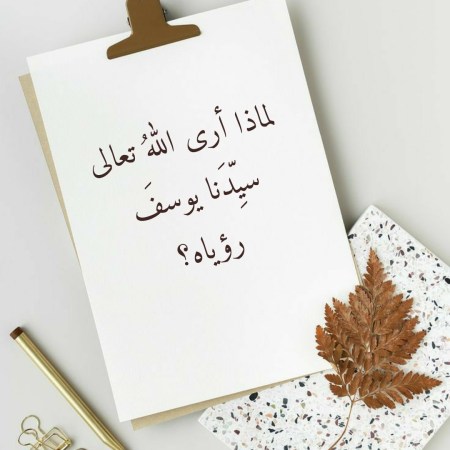 لماذا أرى اللهُ تعالى
سيِّدَنا يوسفَ
رؤياه؟